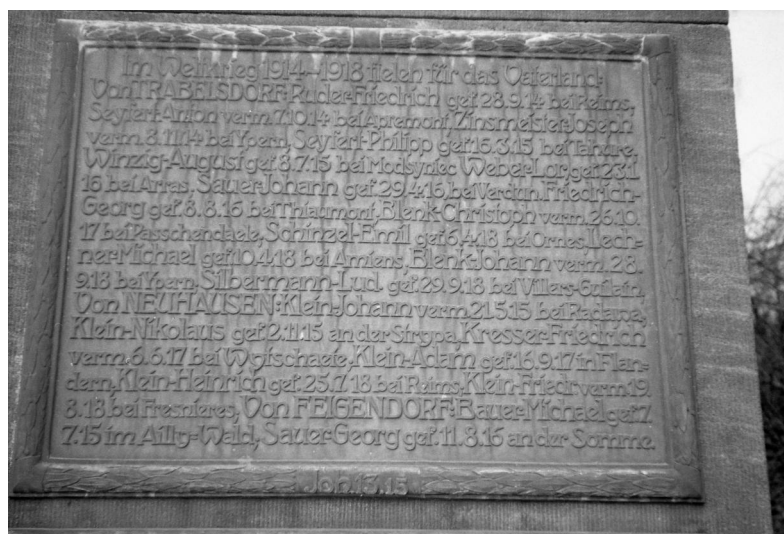 Im Weltkrieg 1914–1918 fielen für das Vaterland:
Von TRABELSDORF: Ruder-Friedrich gef. 28.9.14 bei Reims,
Seyfert-Anton verm. 7.10.14 bei Apremont, Zinsmeister-Joseph
verm. 8.11.14 bei Ypern, Seyfert-Philipp gef. 16.3.15 bei Tahure,
Winzig-August gef. 8.7.15 bei Modsyniec Weber-Lor. gef. 23.1.
16 bei Arras, Sauer-Johann gef. 29.4.16 bei Verdun, Friedrich-
Georg gef. 8.8.16 bei Thiaumont, Blenk-Christoph verm. 26.10.
17 bei Passchendaele, Schinzel-Emil gef. 6.4.18 bei Ornes, Lech-
ner-Michael gef. 10.4.18 bei Amiens, Blenk-Johann verm. 28.
9.18 bei Ypern, Silbermann-Lud. gef. 29.9.18 bei Villers-Guilain,
Von NEUHAUSEN: Klein-Johann verm. 21.5.15 bei Radana,
Klein-Nikolaus gef. 2.11.15 an der Strypa, Kresser-Friedrich
verm. 6.6.17 bei Wytschaete, Klein-Adam gef. 16.9.17 in Flan-
dern, Klein-Heinrich gef. 25.7.18 bei Reims, Klein-Friedr. verm. 19.
8.18. bei Fresnieres, Von FEIGENDORF: Bauer-Michael gef. 7.
7.15 im Ailly=Wald, Sauer-Georg gef. 11.8.16 an der Somme.
Joh. 13.15